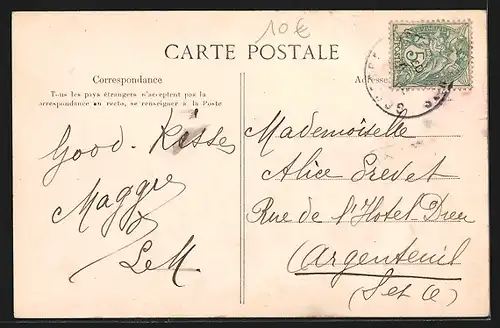 10€
CARTE POSTALE
Correspondance
Tous les pays étrangers n'acceptent pas la
correspondance au recto, se renseigner à la Poste
Adresse
5
Good-Kisses
Maggie
Le M
Mademoiselle
Alice Prevet
Rue de l'Hotel-Dieu
Argenteuil
(S et O)